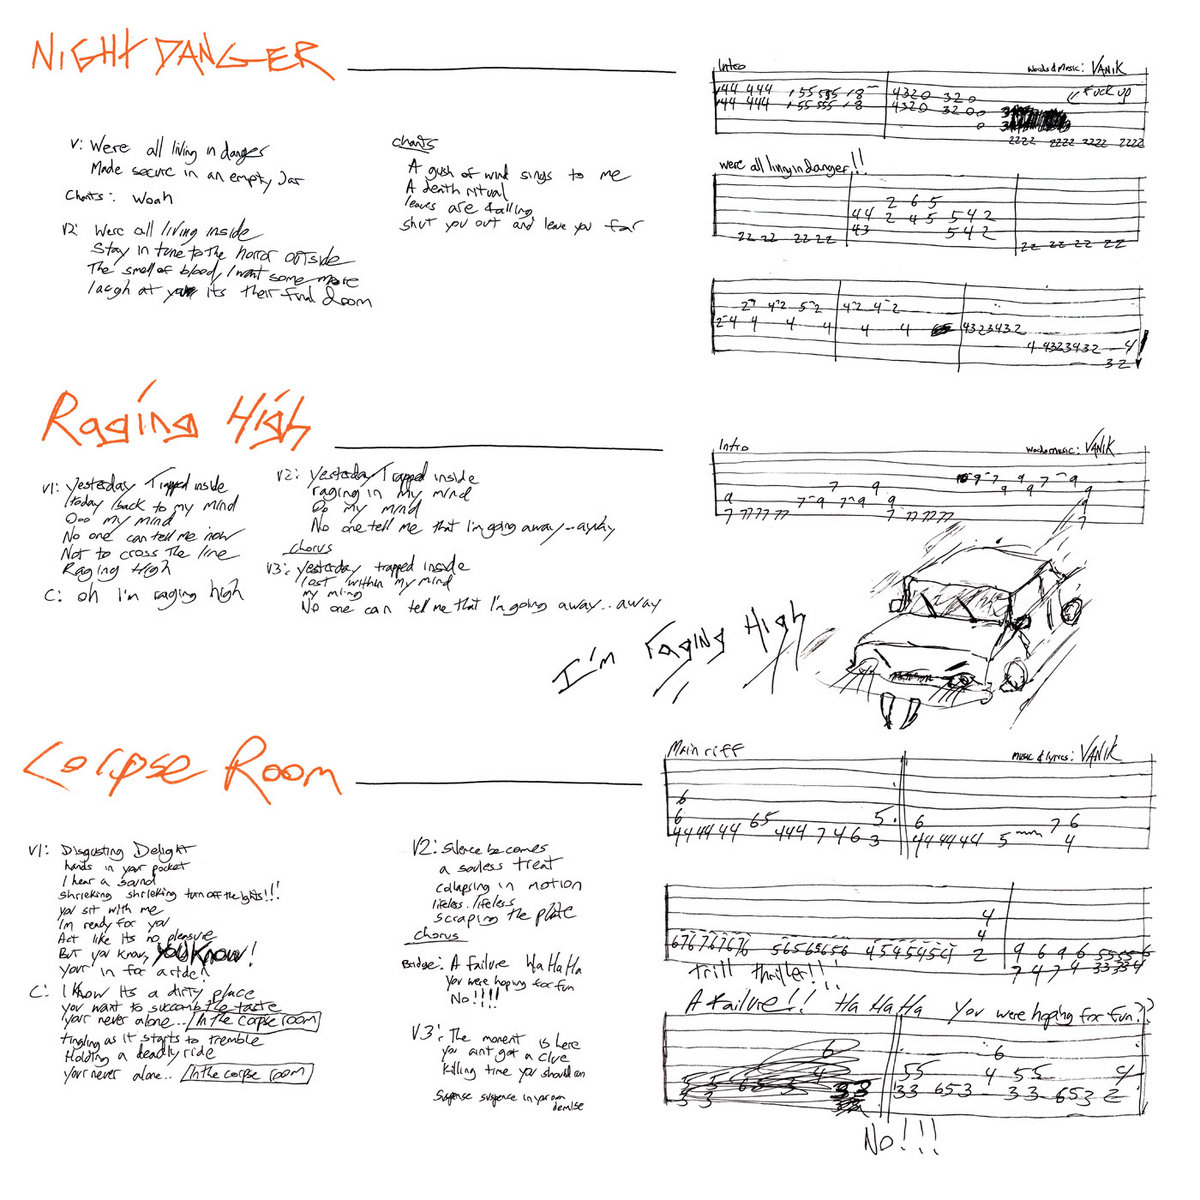 NIGHT DANGER
V: Were all living in danger
Made secure in an empty Jar
Chants: Woah
V2: Were all living inside
Stay in tune to the horror outside
The smell of blood, I want some more
laugh at you its their final doom
chants
A gush of wind sings to me
A death ritual
leaves are falling
shut you out and leave you far
Intro
Words & Music: VANIK
444 444 155555 18
444 444 155555 18
4320 320
4320 3200
0
Fuck up
2222 2222 2222 2222
were all living in danger!!
2 6 5
44 2 4 5 5 4 2
43 5 4 2
2222 2222
22 22 22 22
2 4-2 5-2 4-2 4-2
2-4 4 4 4 4 4 4323432
4-4323432 4
32
Raging High
V1: Yesterday Trapped inside
Today back to my mind
Ooo my mind
No one can tell me how
Not to cross the line
Raging High
C: oh I'm raging high
V2: Yesterday Trapped inside
raging in my mind
Oo my mind
No one tell me that I'm going away...away
chorus
V3: Yesterday trapped inside
lost within my mind
my mind
No one can tell me that I'm going away..away
Intro
Words music: VANIK
9 7-9 7-9 7 9 9
7 77 77 77 7 77 77 77
7 9 9 7 9 9
7
I'm raging High
Corpse Room
V1: Disgusting Delight
hands in your pocket
I hear a sound
shrieking shrieking turn off the lights!!!
you sit with me
I'm ready for you
Act like its no pleasure
But you know, YOU KNOW!
your in for a ride!
C: I know its a dirty place
you want to succumb the taste
Your never alone... In the corpse room
Tingling as it starts to tremble
Holding a deadly ride
your never alone.. In the corpse room
V2: Silence becomes
a soulless treat
collapsing in motion
lifeless.. lifeless
scraping the plate
chorus
Bridge: A failure Ha Ha Ha
You were hoping for fun
No!!!!
V3: The moment is here
You aint got a clue
Killing time you should run
Suspense suspense in your own
demise
Main riff
Music & lyrics: VANIK
6
6 65 5.
44 44 44 444 7 4 6 3
6 7 6
44 44 44 5 4
4
4
67676767676 56565656 454545454 2
9 6 9 6 5555 6
7 4 7 4 3333 4
trill thriller!!!
A failure!! Ha Ha Ha You were hoping for fun??
6
55 653 4
33 33
6
55 4 55 4
33 653 33 653 2
No!!!